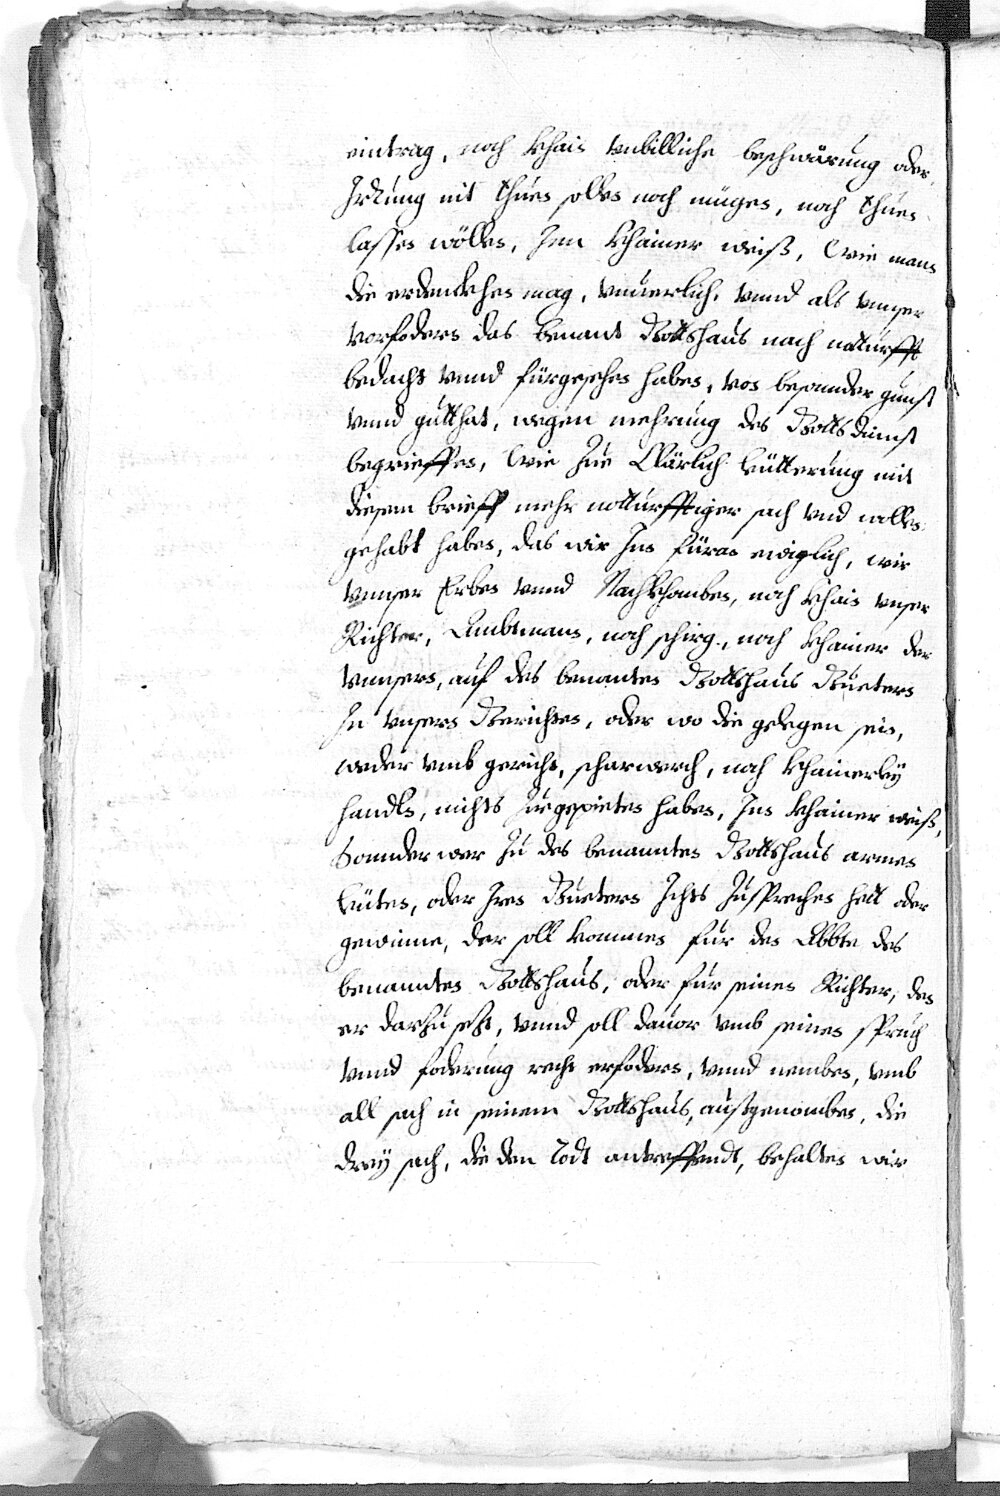 eintrag, noch khain vnbilliche beschwärung oder
Irrung nit thuen sollen noch mügen, noch thuen
lassen wöllen, Inn khainer weiß, Wie mans
die erdenckhen mag, vnuerlich, vnnd als vnnser
vorfodern das benant Gottshaus nach notturfft
bedacht vnnd fürgesehen haben, von besonnder gunst
vnnd gutthat, wegen mehrung des Gottsdienst
begrieffen, Wie zue Clärlich leütterung mit
diesem brieff mehr notturfftiger sach vnd willen
gehabt haben, das wir Inn füran ewiglich, wir
vnnser Erben vnnd Nachkhomben, noch khain vnser
Richter, Ambtmann, noch scherg, noch khainer der
vnnsern, auf des benanten Gottshaus Guetern
In vnsern Gerichten, oder wo die gelegen sein,
weder vmb gericht, scharwerch, noch khainerley
handln, nichts zuegepieten haben, Inn khainer weiß,
Sonnder wer zu des benannten Gottshaus armen
leüten, oder Iren Guetern Ichts zusprechen hett oder
gewinne, der soll kommen für den Abbte des
benannten Gottshaus, oder für seinen Richter, den
er darzu sezt, vnnd soll dauor vmb seinen spruch
vnnd foderung recht erfodern, vnnd nemben, vmb
all sach in seinem Gottshaus, außgenomben, die
drey sach, die den Todt antreffendt, behalten wir